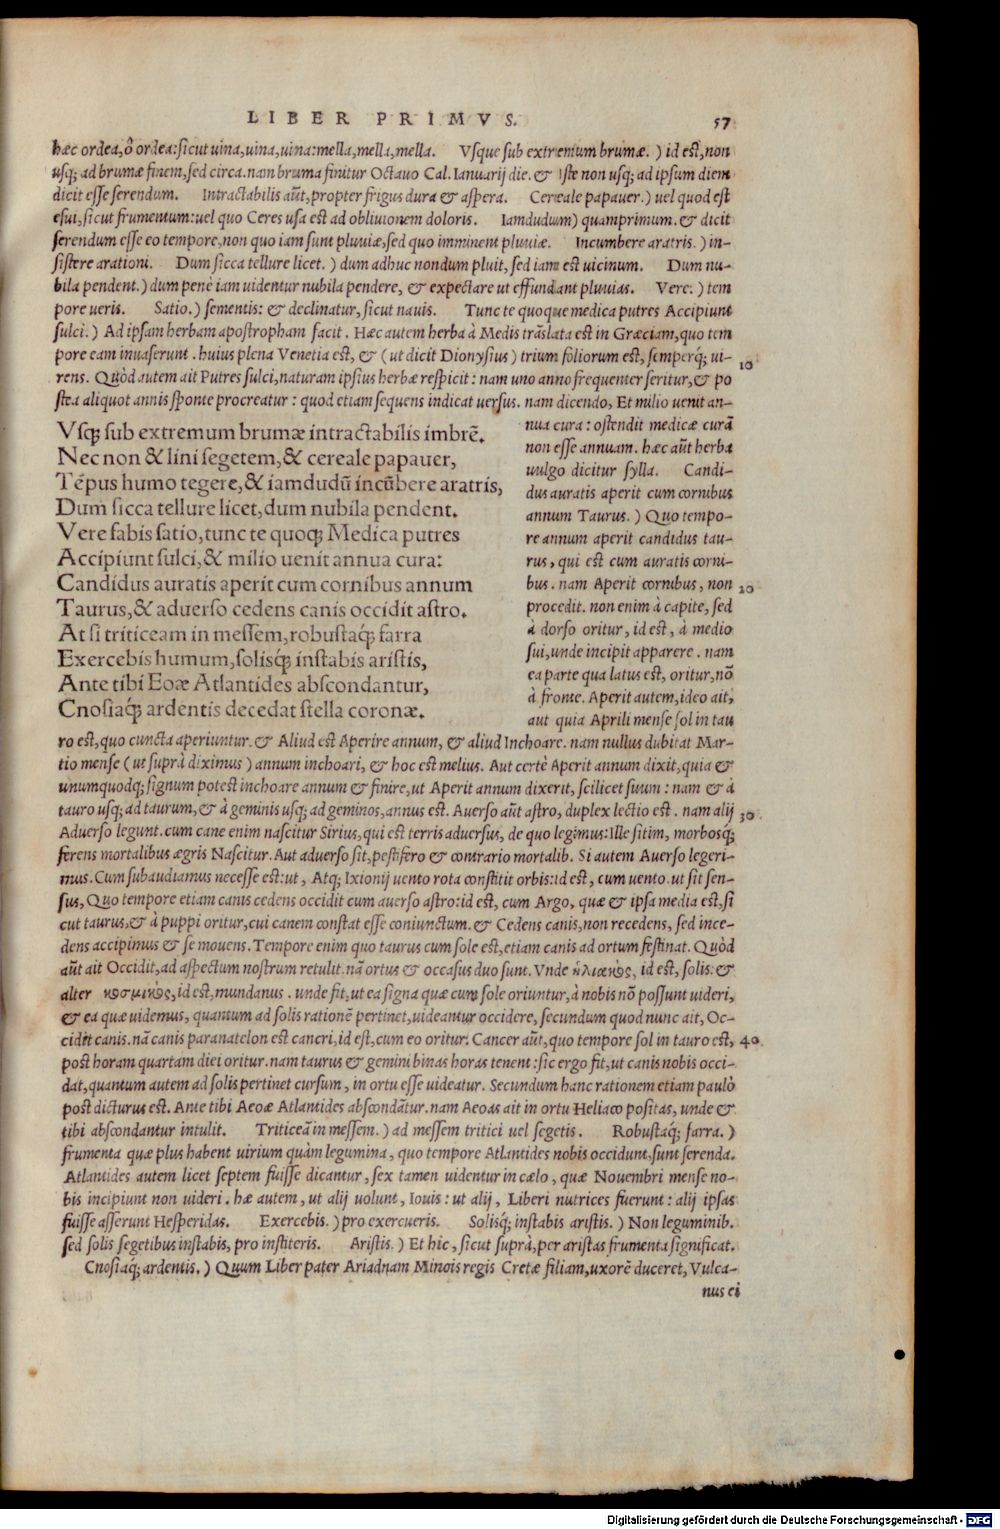 LIBER PRIMVS. 57
hæc ordea, ô ordea: sicut uina, uina, uina: mella, mella, mella. Vsque sub extremum brumæ. ) id est, non
usq; ad brumæ finem, sed circa. nam bruma finitur Octauo Cal. Ianuarij die. & Iste non usq; ad ipsum diem
dicit esse serendum. Intractabilis aũt, propter frigus dura & aspera. Cereale papauer. ) uel quod est
esui, sicut frumentum: uel quo Ceres usa est ad obliuionem doloris. Iamdudum) quamprimum. & dicit
serendum esse eo tempore, non quo iam sunt pluuiæ, sed quo imminent pluuiæ. Incumbere aratris. ) in-
sistere arationi. Dum sicca tellure licet. ) dum adhuc nondum pluit, sed iam est uicinum. Dum nu-
bila pendent. ) dum penè iam uidentur nubila pendere, & expectare ut effundant pluuias. Vere. ) tem
pore ueris. Satio. ) sementis: & declinatur, sicut nauis. Tunc te quoque medica putres Accipiunt
sulci. ) Ad ipsam herbam apostropham facit. Hæc autem herba à Medis trãslata est in Græciam, quo tem
pore eam inuaserunt. huius plena Venetia est, & ( ut dicit Dionysius ) trium foliorum est, semperq; ui- 10
rens. Quòd autem ait Putres sulci, naturam ipsius herbæ respicit: nam uno anno frequenter seritur, & po
stea aliquot annis sponte procreatur: quod etiam sequens indicat uersus. nam dicendo, Et milio uenit an-
Vsq; sub extremum brumæ intractabilis imbrẽ.
Nec non & lini segetem, & cereale papauer,
Tẽpus humo tegere, & iamdudũ incũbere aratris,
Dum sicca tellure licet, dum nubila pendent.
Vere fabis satio, tunc te quoq; Medica putres
Accipiunt sulci, & milio uenit annua cura:
Candidus auratis aperit cum cornibus annum
Taurus, & aduerso cedens canis occidit astro.
At si triticeam in messem, robustaq́; farra
Exercebis humum, solisq́; instabis aristis,
Ante tibi Eoæ Atlantides abscondantur,
Cnosiaq́; ardentis decedat stella coronæ.
nua cura: ostendit medicæ curã
non esse annuam. hæc aũt herba
uulgo dicitur sylla. Candi-
dus auratis aperit cum cornibus
annum Taurus. ) Quo tempo-
re annum aperit candidus tau-
rus, qui est cum auratis corni-
bus. nam Aperit cornibus, non 20
procedit. non enim à capite, sed
à dorso oritur, id est, à medio
sui, unde incipit apparere. nam
ea parte qua latus est, oritur, nõ
à fronte. Aperit autem, ideo ait,
aut quia Aprili mense sol in tau
ro est, quo cuncta aperiuntur. & Aliud est Aperire annum, & aliud Inchoare. nam nullus dubitat Mar-
tio mense ( ut suprà diximus ) annum inchoari, & hoc est melius. Aut certè Aperit annum dixit, quia &
unumquodq; signum potest inchoare annum & finire, ut Aperit annum dixerit, scilicet suum: nam & à
tauro usq; ad taurum, & à geminis usq; ad geminos, annus est. Auerso aũt astro, duplex lectio est. nam alij 30
Aduerso legunt. cum cane enim nascitur Sirius, qui est terris aduersus, de quo legimus: Ille sitim, morbosq́;
ferens mortalibus ægris Nascitur. Aut aduerso sit, pestifero & contrario mortalib. Si autem Auerso legeri-
mus. Cum subaudiamus necesse est: ut, Atq; Ixionij uento rota constitit orbis: id est, cum uento. ut sit sen-
sus, Quo tempore etiam canis cedens occidit cum auerso astro: id est, cum Argo, quæ & ipsa media est, si
cut taurus, & à puppi oritur, cui canem constat esse coniunctum. & Cedens canis, non recedens, sed ince-
dens accipimus & se mouens. Tempore enim quo taurus cum sole est, etiam canis ad ortum festinat. Quòd
aũt ait Occidit, ad aspectum nostrum retulit. nã ortus & occasus duo sunt. Vnde ἡλιακὸς, id est, solis: &
alter κοσμικὸς, id est, mundanus. unde fit, ut ea signa quæ cum sole oriuntur, à nobis nõ possunt uideri,
& ea quæ uidemus, quantum ad solis rationẽ pertinet, uideantur occidere, secundum quod nunc ait, Oc-
cidit canis. nã canis paranatelon est cancri, id est, cum eo oritur: Cancer aũt, quo tempore sol in tauro est, 40
post horam quartam diei oritur. nam taurus & gemini binas horas tenent: sic ergo fit, ut canis nobis occi-
dat, quantum autem ad solis pertinet cursum, in ortu esse uideatur. Secundum hanc rationem etiam paulò
post dicturus est. Ante tibi Aeoæ Atlantides abscondãtur. nam Aeoas ait in ortu Heliaco positas, unde &
tibi abscondantur intulit. Triticeã in messem. ) ad messem tritici uel segetis. Robustaq́; farra. )
frumenta quæ plus habent uirium quàm legumina, quo tempore Atlantides nobis occidunt, sunt serenda.
Atlantides autem licet septem fuisse dicantur, sex tamen uidentur in cælo, quæ Nouembri mense no-
bis incipiunt non uideri. hæ autem, ut alij uolunt, Iouis: ut alij, Liberi nutrices fuerunt: alij ipsas
fuisse asserunt Hesperidas. Exercebis. ) pro exercueris. Solisq́; instabis aristis. ) Non leguminib.
sed solis segetibus instabis, pro institeris. Aristis. ) Et hic, sicut suprà, per aristas frumenta significat.
Cnosiaq́; ardentis. ) Quum Liber pater Ariadnam Minois regis Cretæ filiam, uxorẽ duceret, Vulca-
nus ei
Digitalisierung gefördert durch die Deutsche Forschungsgemeinschaft - DFG